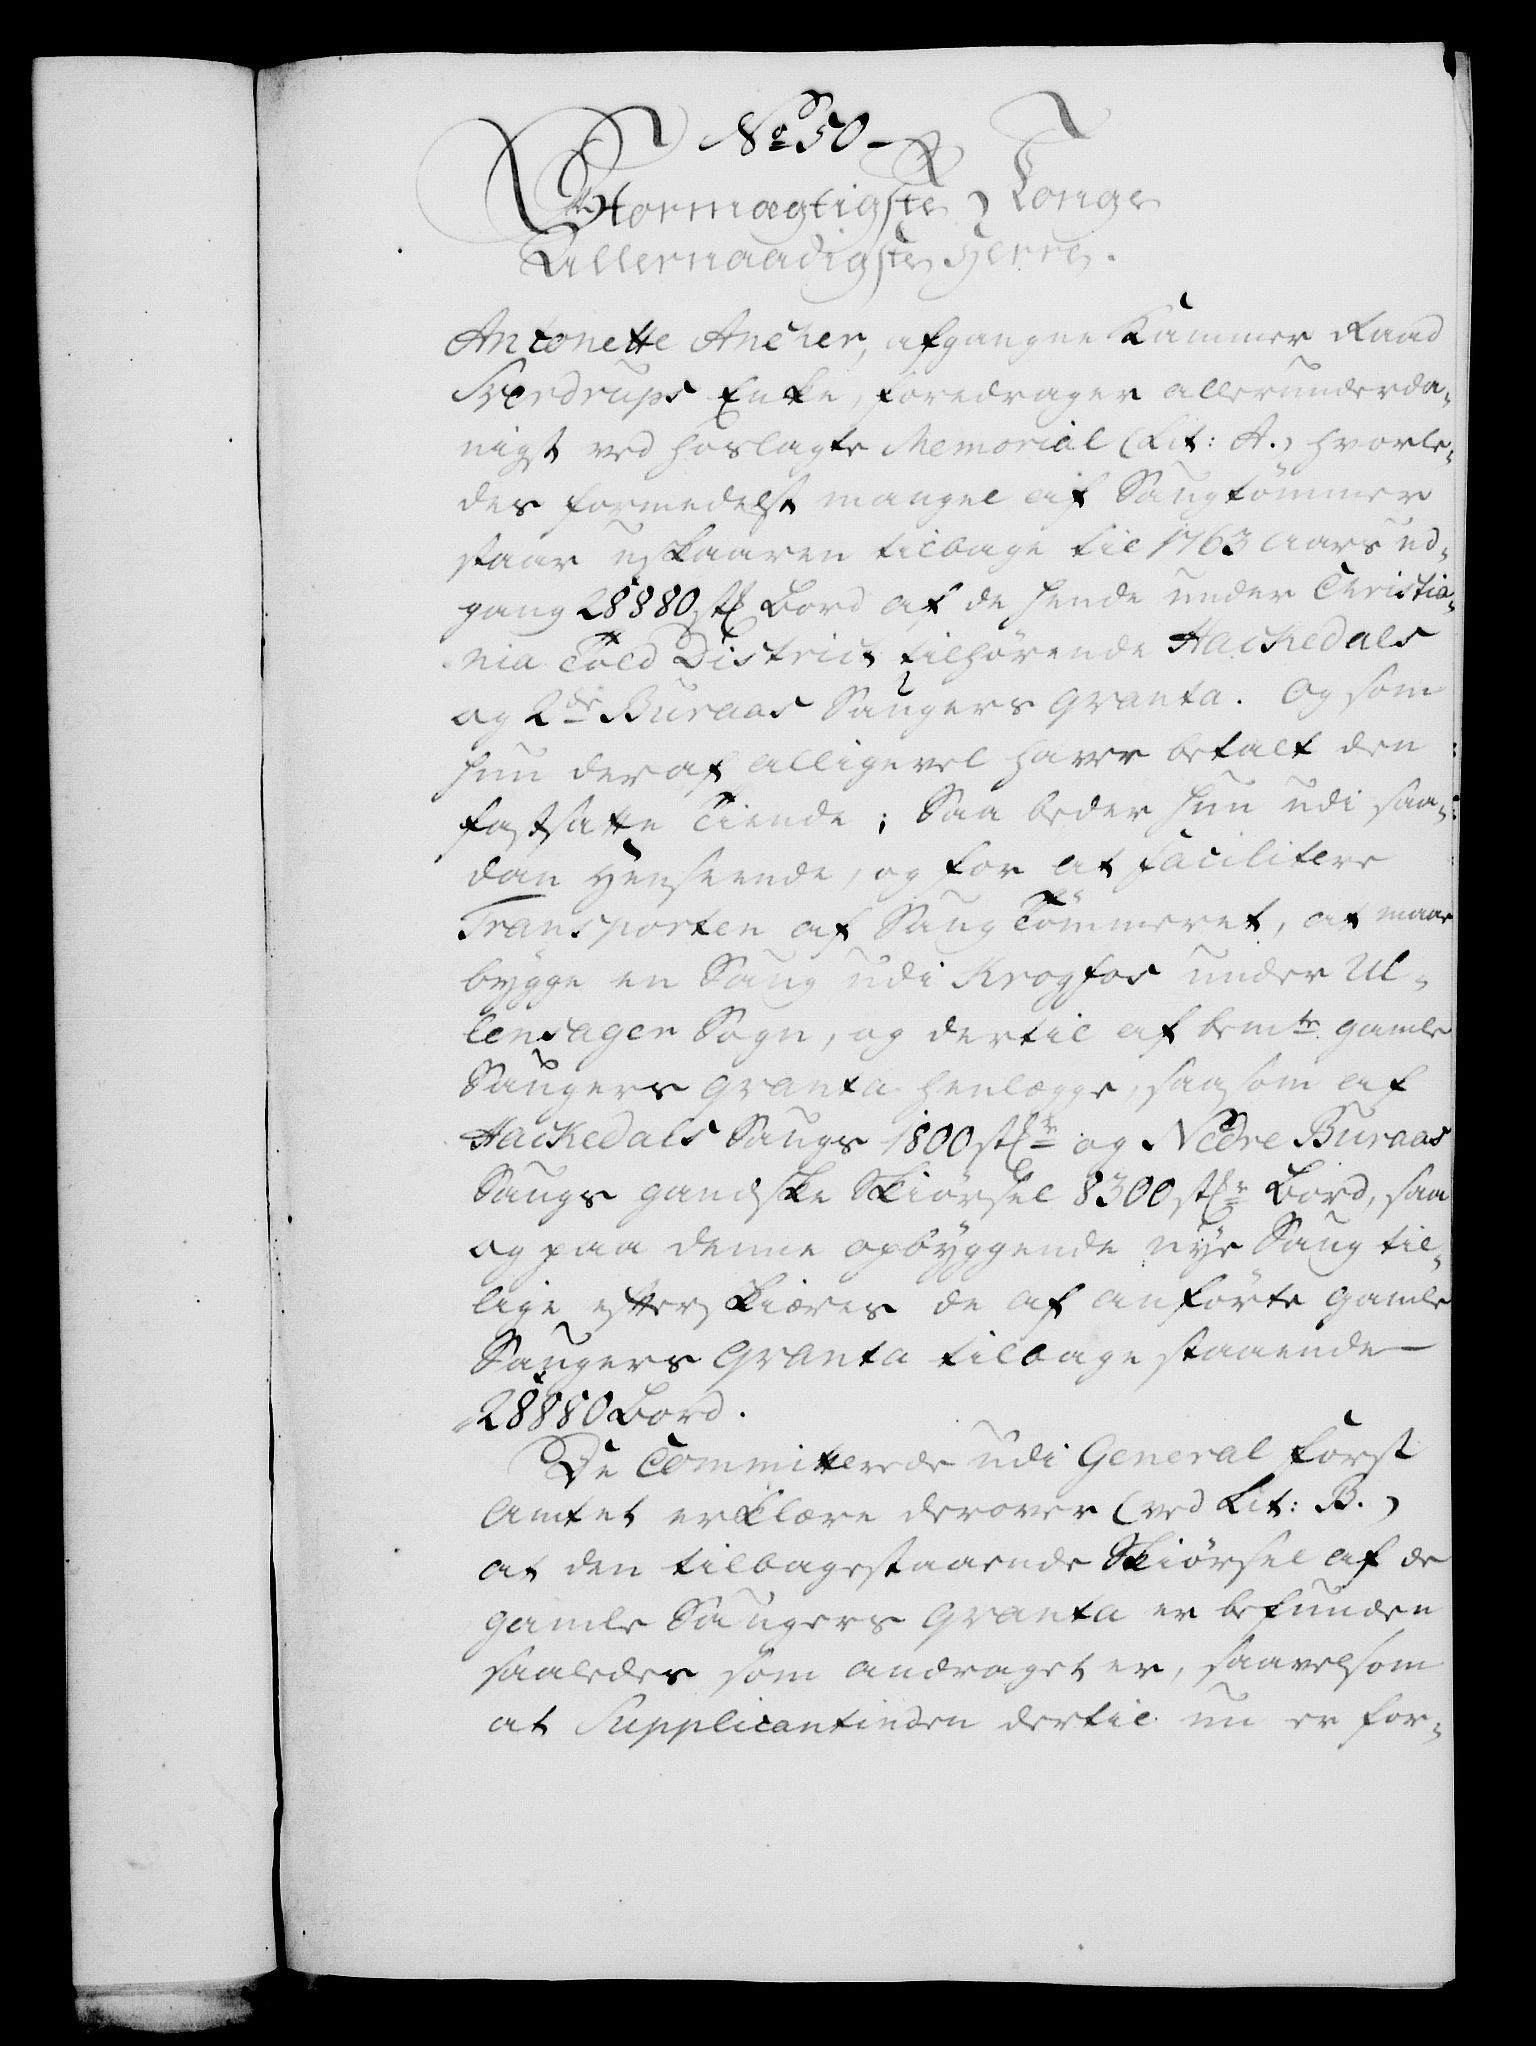 No 50 –
Stormægtigste Konge
Allernaadigste Herre.
Antonette Ancher, afgangne Kammer Raad
Sverdrups Enke, foredrager allerunderda-
nigst ved hoslagte Memorial (Lit: A.) hvorle-
des formedelst mangel af Saugtömmer
staar uskaaren tilbage til 1763 Aars ud-
gang 28880 st{r Bord af de hende under Christia-
nia Told District tilhörende Hackedals
og 2de Buraas Saugers Qvanta. Og som
hun deraf alligevel haver betalt den
fastsatte Tiende; Saa beder hun udi saa-
dan Henseende, og for at facilitere
Transporten af Saug Tömmeret, at maae
bygge en Saug udi Krogfos under Ul-
lensager Sogn, og dertil af bemte gamle
Saugers Qvanta henlægge, saasom af
Hackedals Saugs 1800 stkr og Nedre Buraas
Saugs gandske Skiörsel 8300 stkr Bord, saa
og paa denne opbÿggende nÿe Saug til-
lige efterskiæres de af anförte gamle
Saugers Qvanta tilbage staaende –
28880 Bord.
De Committerede udi General Forst
Amtet erklære derover (ved Lit: B.)
at den tilbagestaaende Skiörsel af de
gamle Saugers Qvanta er befunden
saaledes som andraget er, saavelsom
at Supplicantinden dertil nu er for-